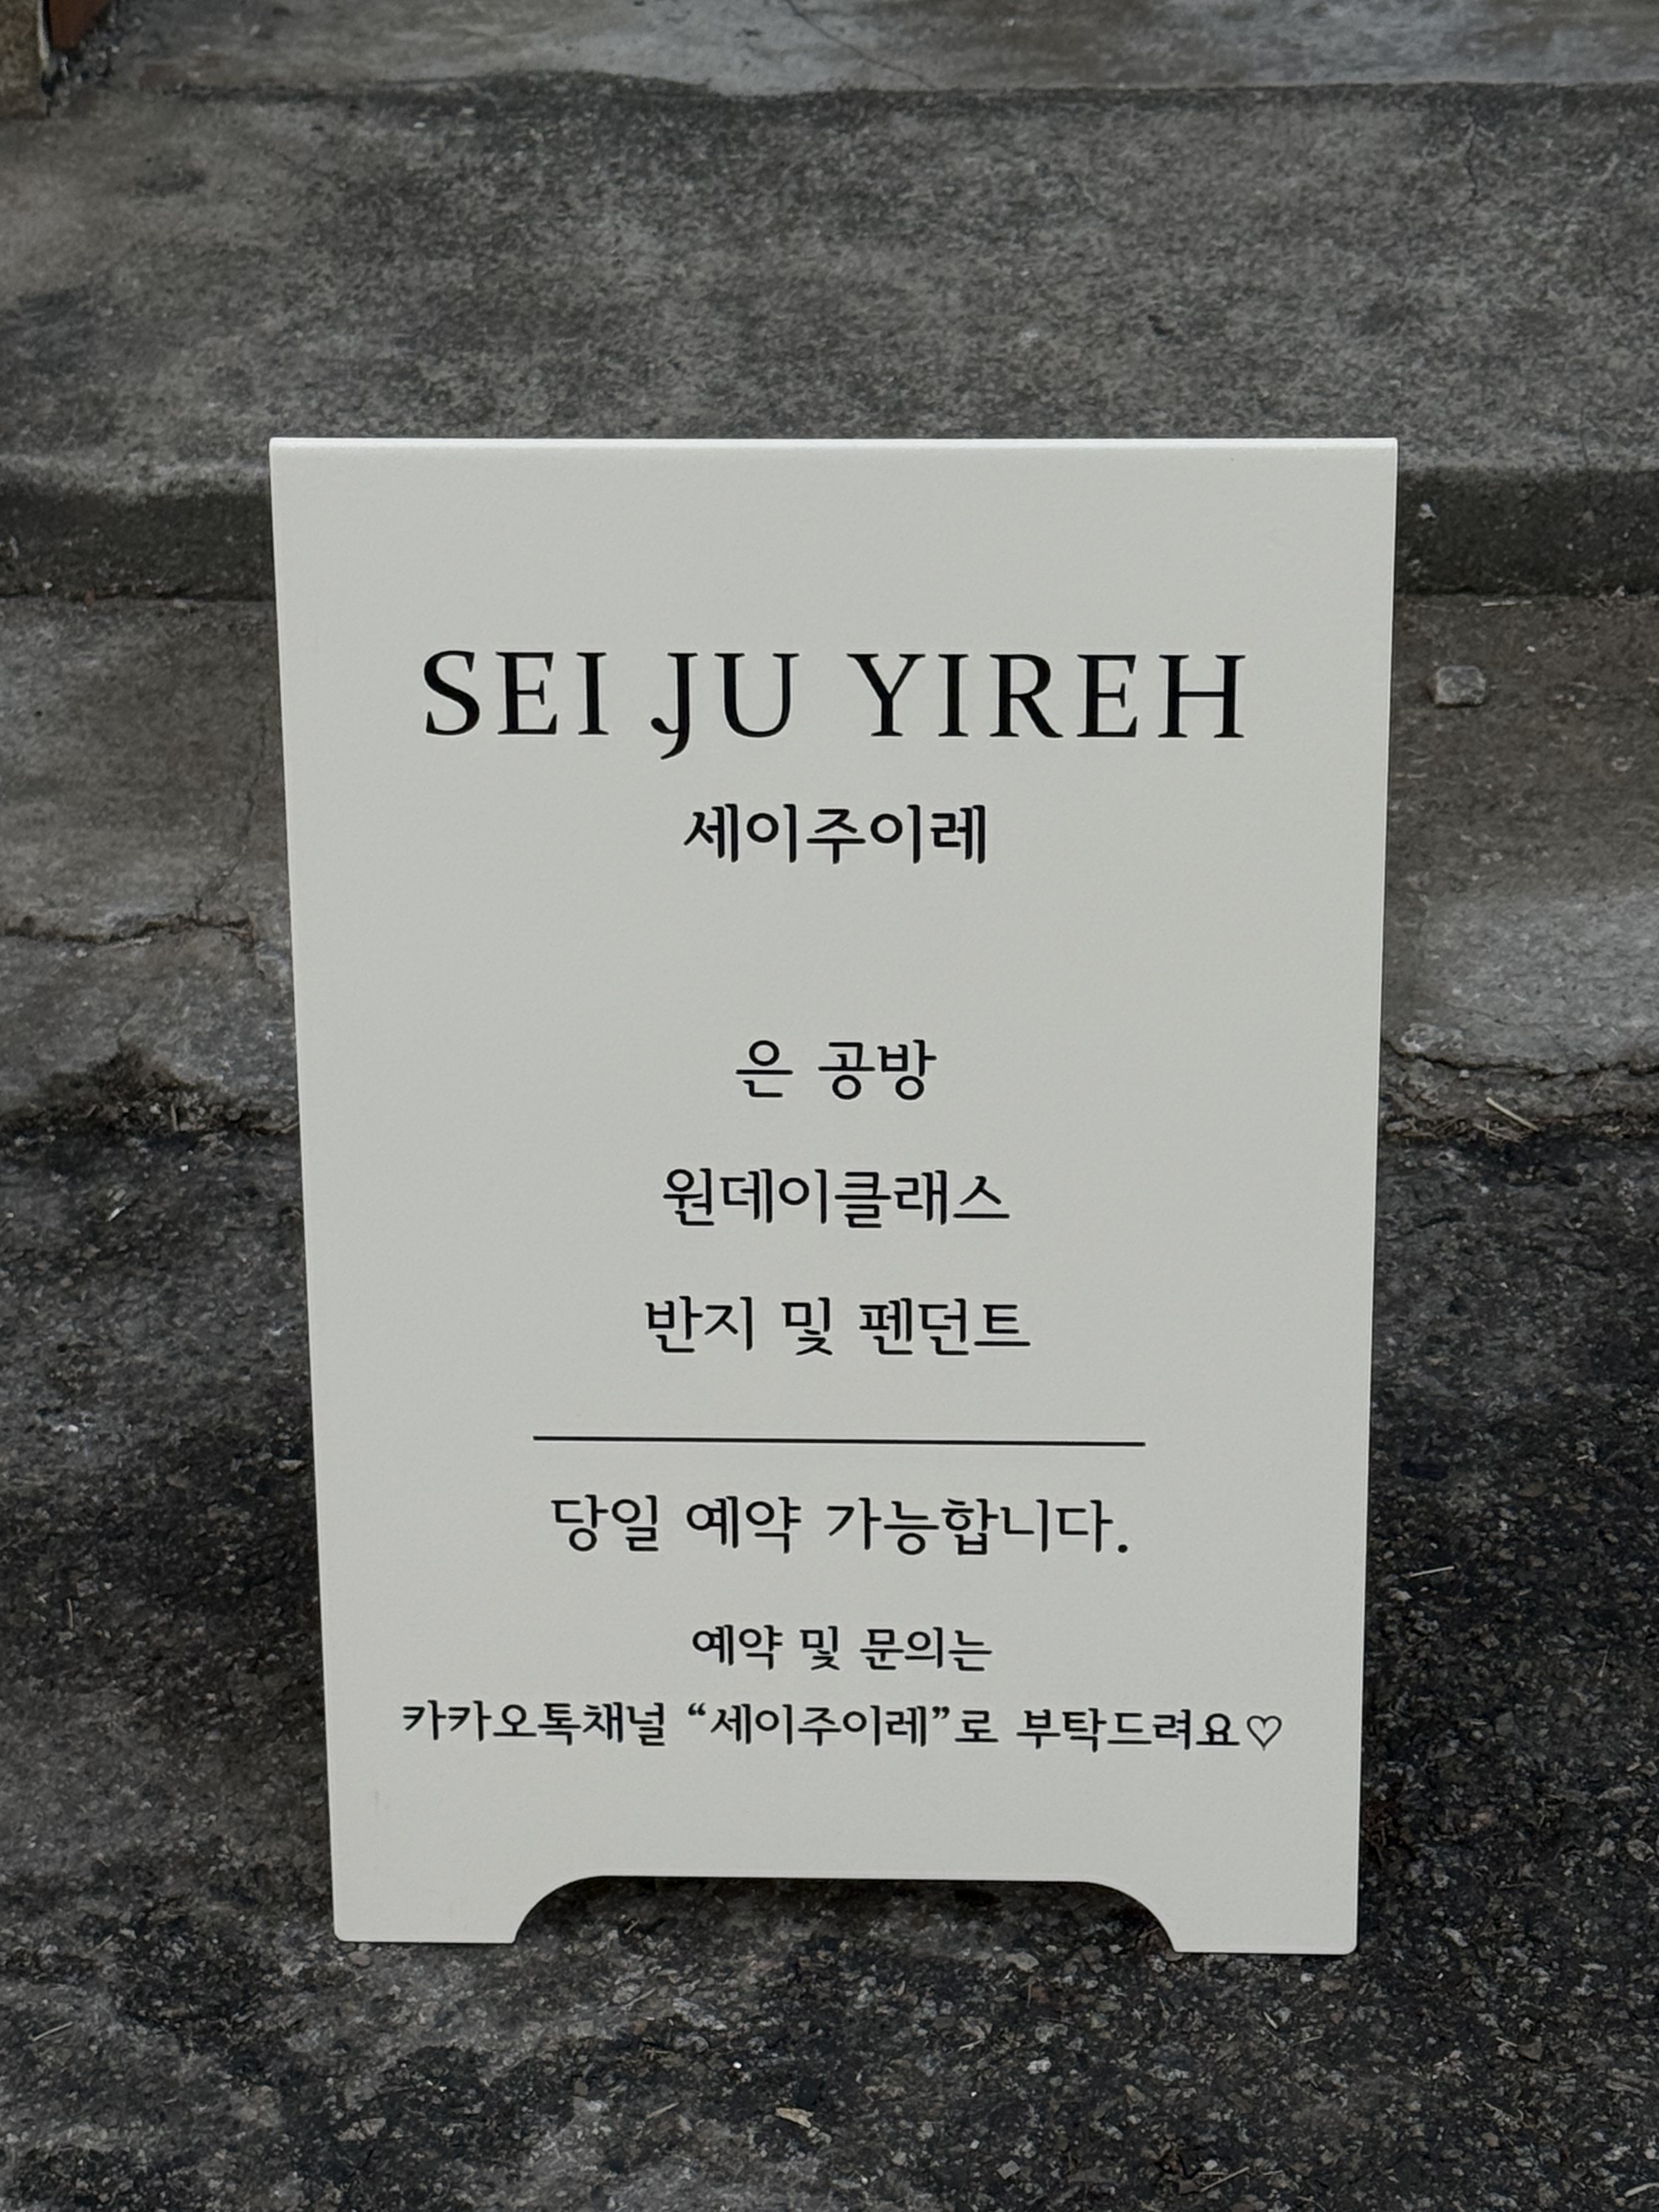 SEI JU YIREH
세이주이레
은 공방
원데이클래스
반지 및 펜던트
당일 예약 가능합니다.
예약 및 문의는
카카오톡채널 “세이주이레”로 부탁드려요♡